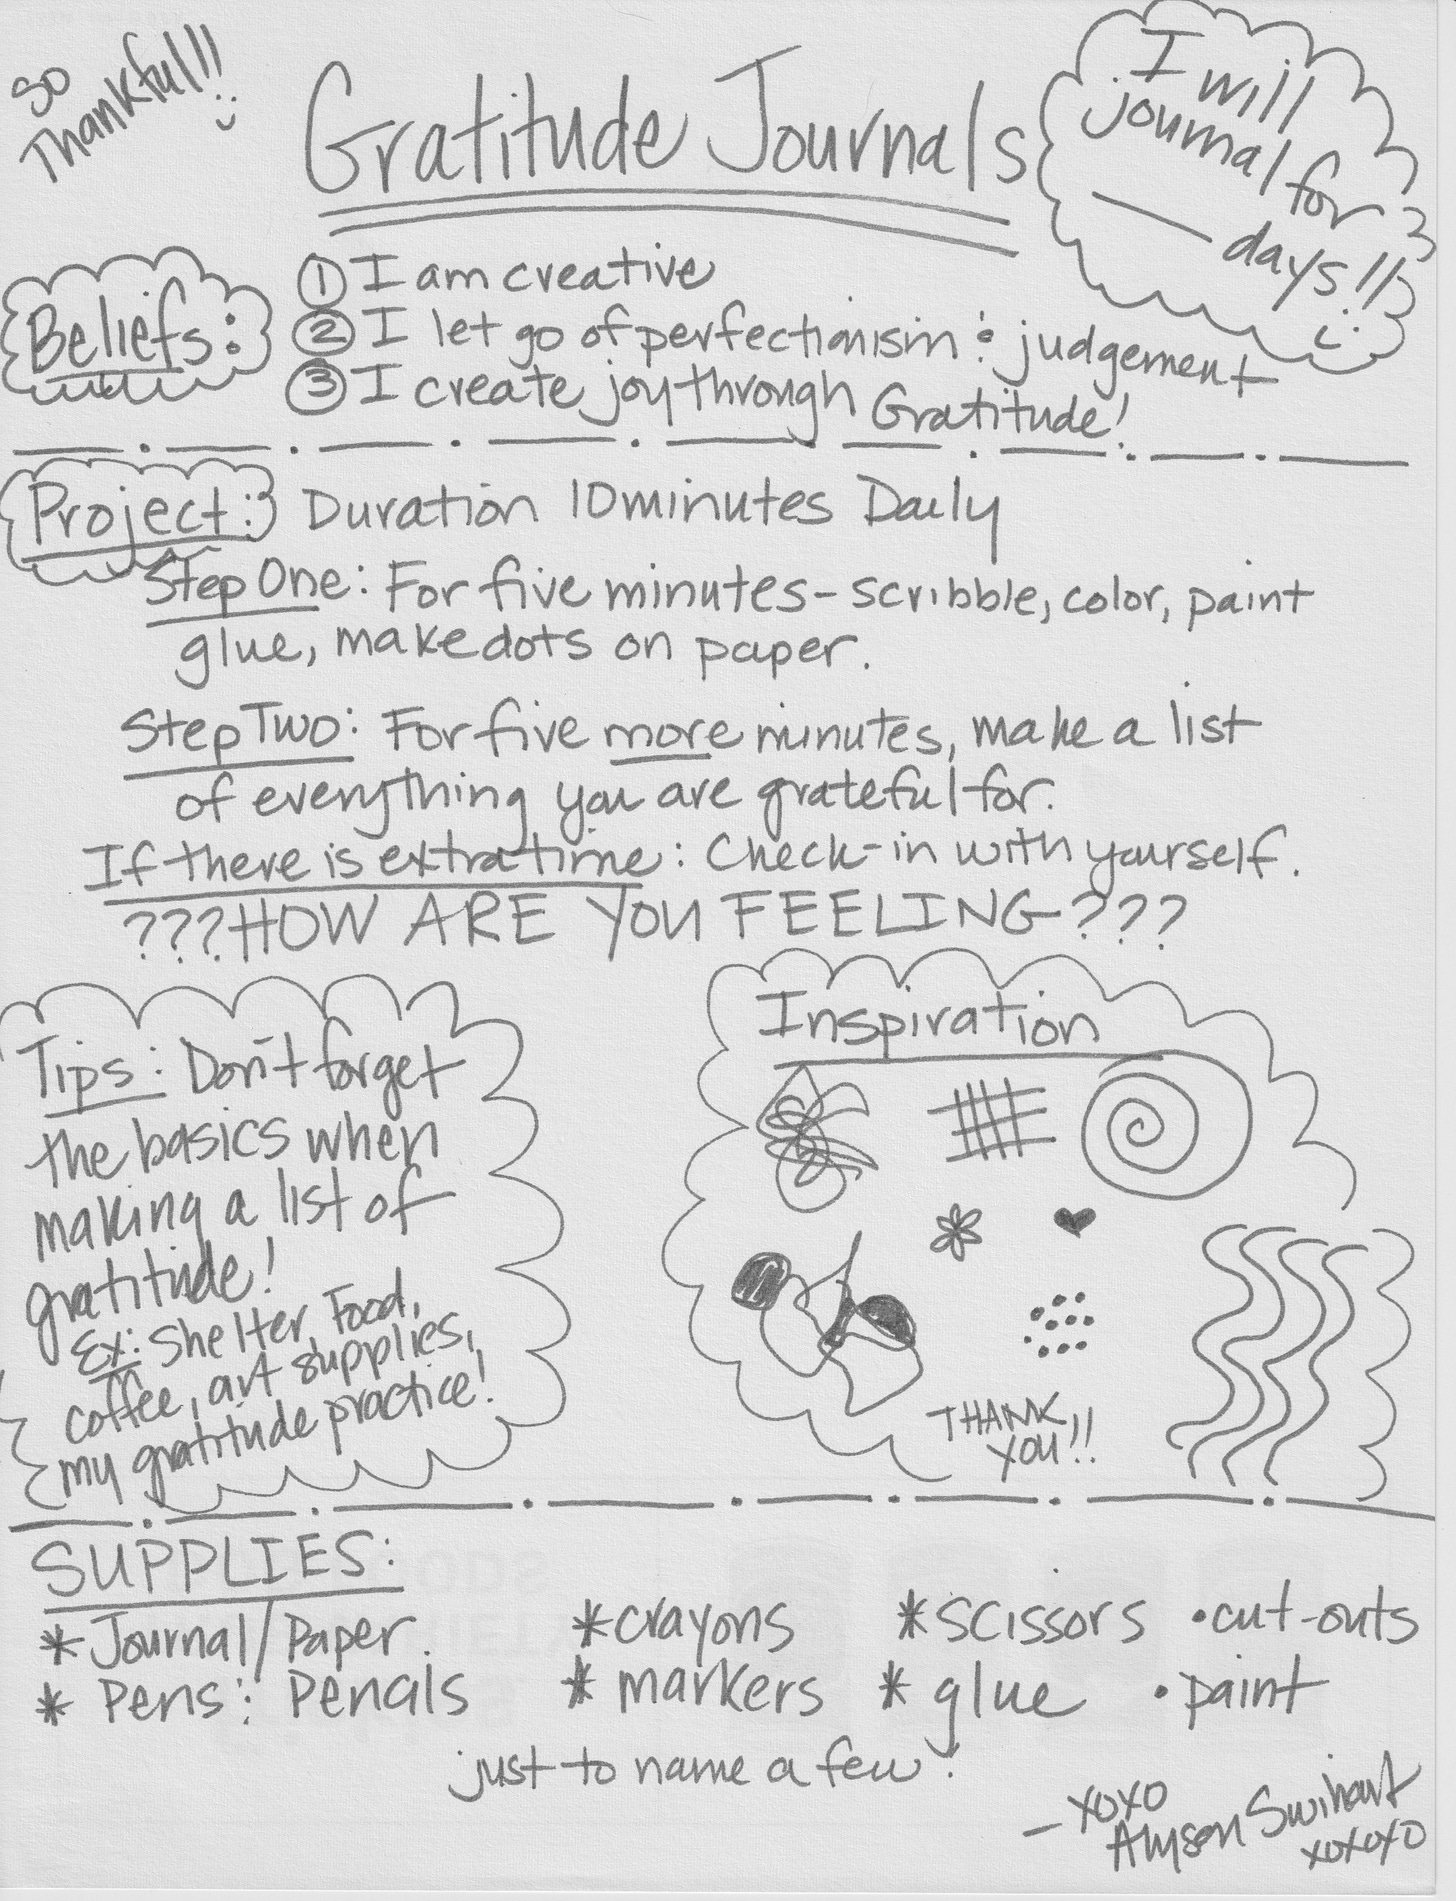 So
Thankful!!
Gratitude Journals
I will
journal for
____ days!!
Beliefs:
① I am creative
② I let go of perfectionism & judgement
③ I create joy through Gratitude!
Project: Duration 10 minutes Daily
Step One: For five minutes - scribble, color, paint
glue, make dots on paper.
Step Two: For five more minutes, make a list
of everything you are grateful for.
If there is extra time: Check-in with yourself.
???HOW ARE YOU FEELING???
Tips: Don't forget
the basics when
making a list of
gratitude!
Ex: Shelter, Food,
coffee, art supplies,
my gratitude practice!
Inspiration
THANK
YOU!!
SUPPLIES:
* Journal/Paper. * crayons * scissors • cut-outs
* Pens & Pencils * markers * glue • paint
just to name a few!
- xoxo
Alyson Swihart
xoxoxo